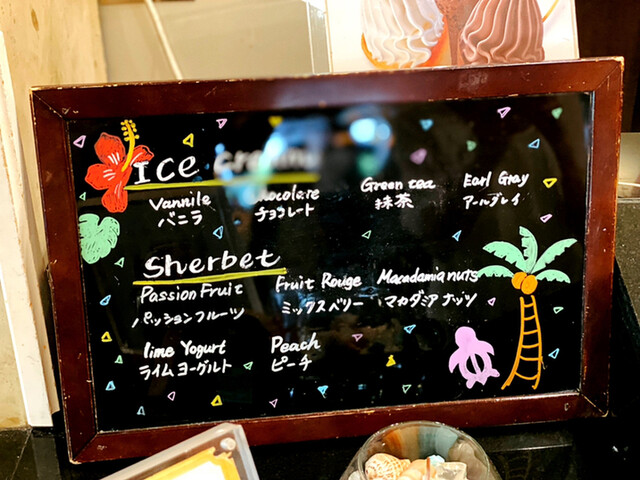 Ice cream
Vannile chocolate Green tea Earl Gray
バニラ チョコレート 抹茶 アールグレイ
Sherbet
Passion Fruit Fruit Rouge Macadamia nuts
パッションフルーツ ミックスベリー マカダミアナッツ
lime Yogurt Peach
ライムヨーグルト ピーチ